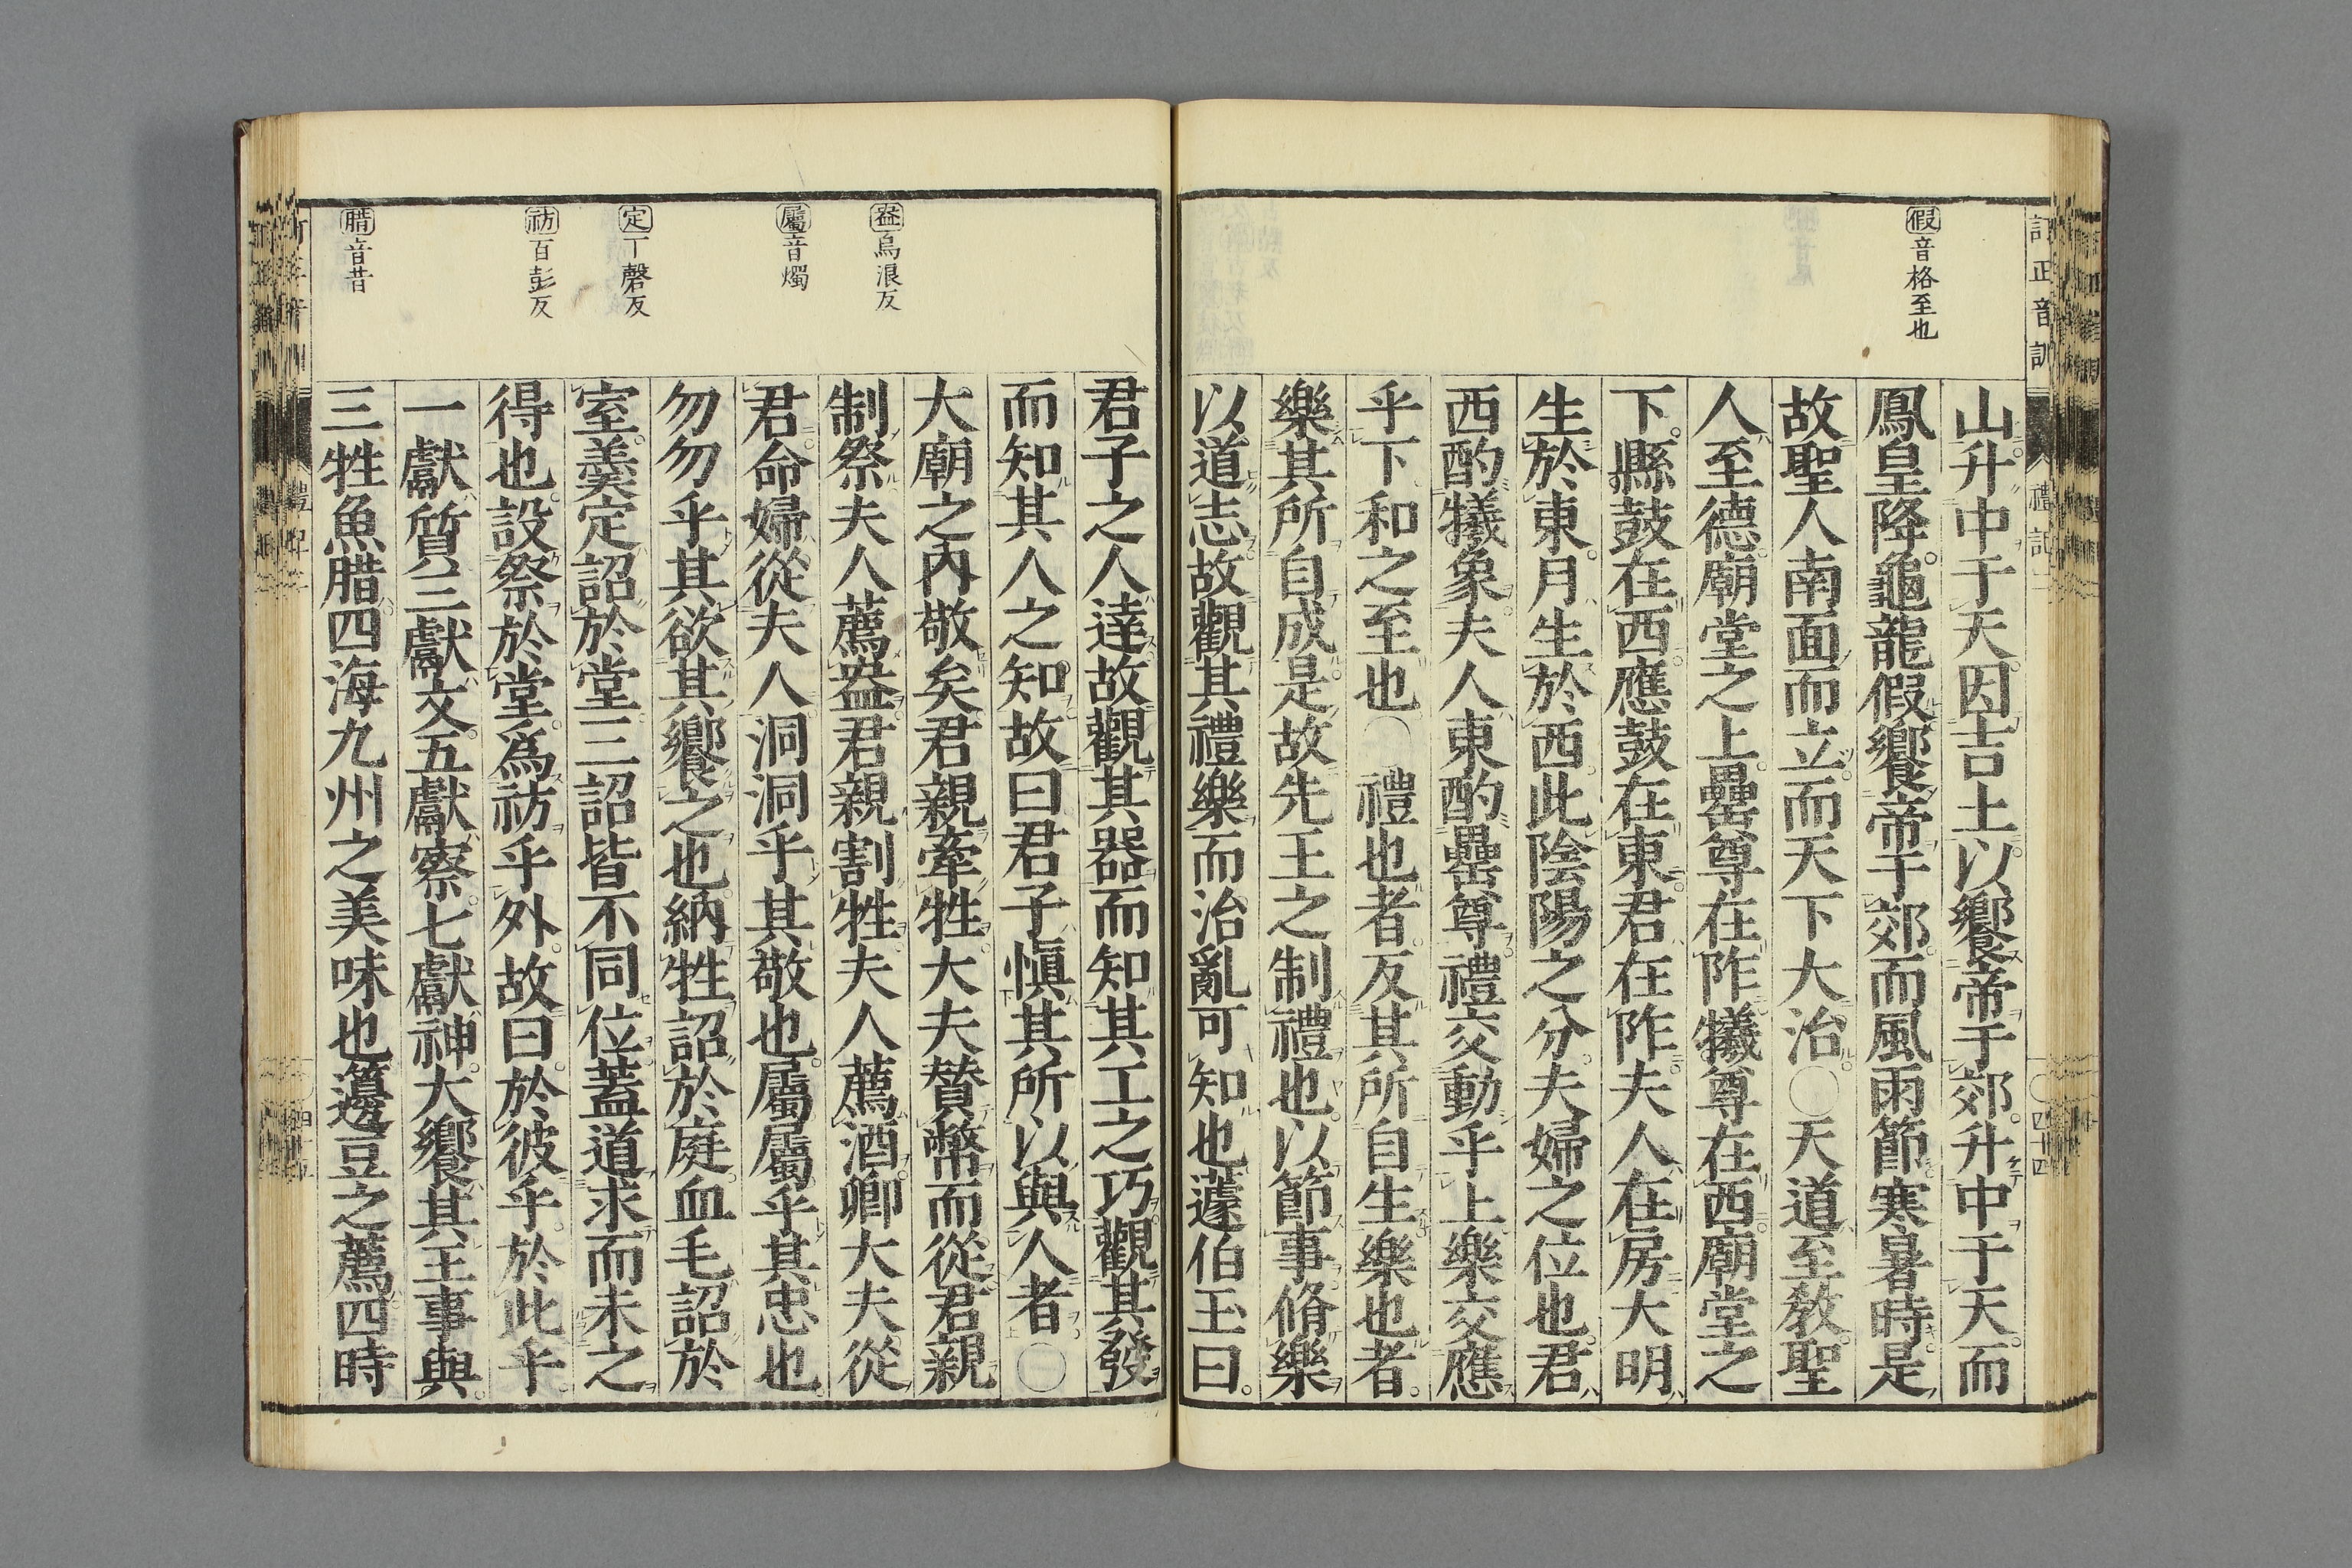 訂正音訓
禮記二
四十四
假音格至也
山升中于天因吉土以饗帝于郊升中于天而
鳳皇降龜龍假饗帝于郊而風雨節寒暑時是
故聖人南面而立而天下大治○天道至敎聖
人至德廟堂之上罍尊在阼犧尊在西廟堂之
下縣鼓在西應鼓在東君在阼夫人在房大明
生於東月生於西此陰陽之分夫婦之位也君
西酌犧象夫人東酌罍尊禮交動乎上樂交應
乎下和之至也○禮也者反其所自生樂也者
樂其所自成是故先王之制禮也以節事脩樂
以道志故觀其禮樂而治亂可知也蘧伯玉曰
盎烏浪反
屬音燭
定丁磬反
祊百彭反
腊音昔
君子之人達故觀其器而知其工之巧觀其發
而知其人之知故曰君子愼其所以與人者○
大廟之內敬矣君親牽牲大夫賛幣而從君親
制祭夫人薦盎君親割牲夫人薦酒卿大夫從
君命婦從夫人洞洞乎其敬也屬屬乎其忠也
勿勿乎其欲其饗之也納牲詔於庭血毛詔於
室羹定詔於堂三詔皆不同位蓋道求而未之
得也設祭於堂爲祊乎外故曰於彼乎於此乎
一獻質三獻文五獻察七獻神大饗其王事與
三牲魚腊四海九州之美味也籩豆之薦四時